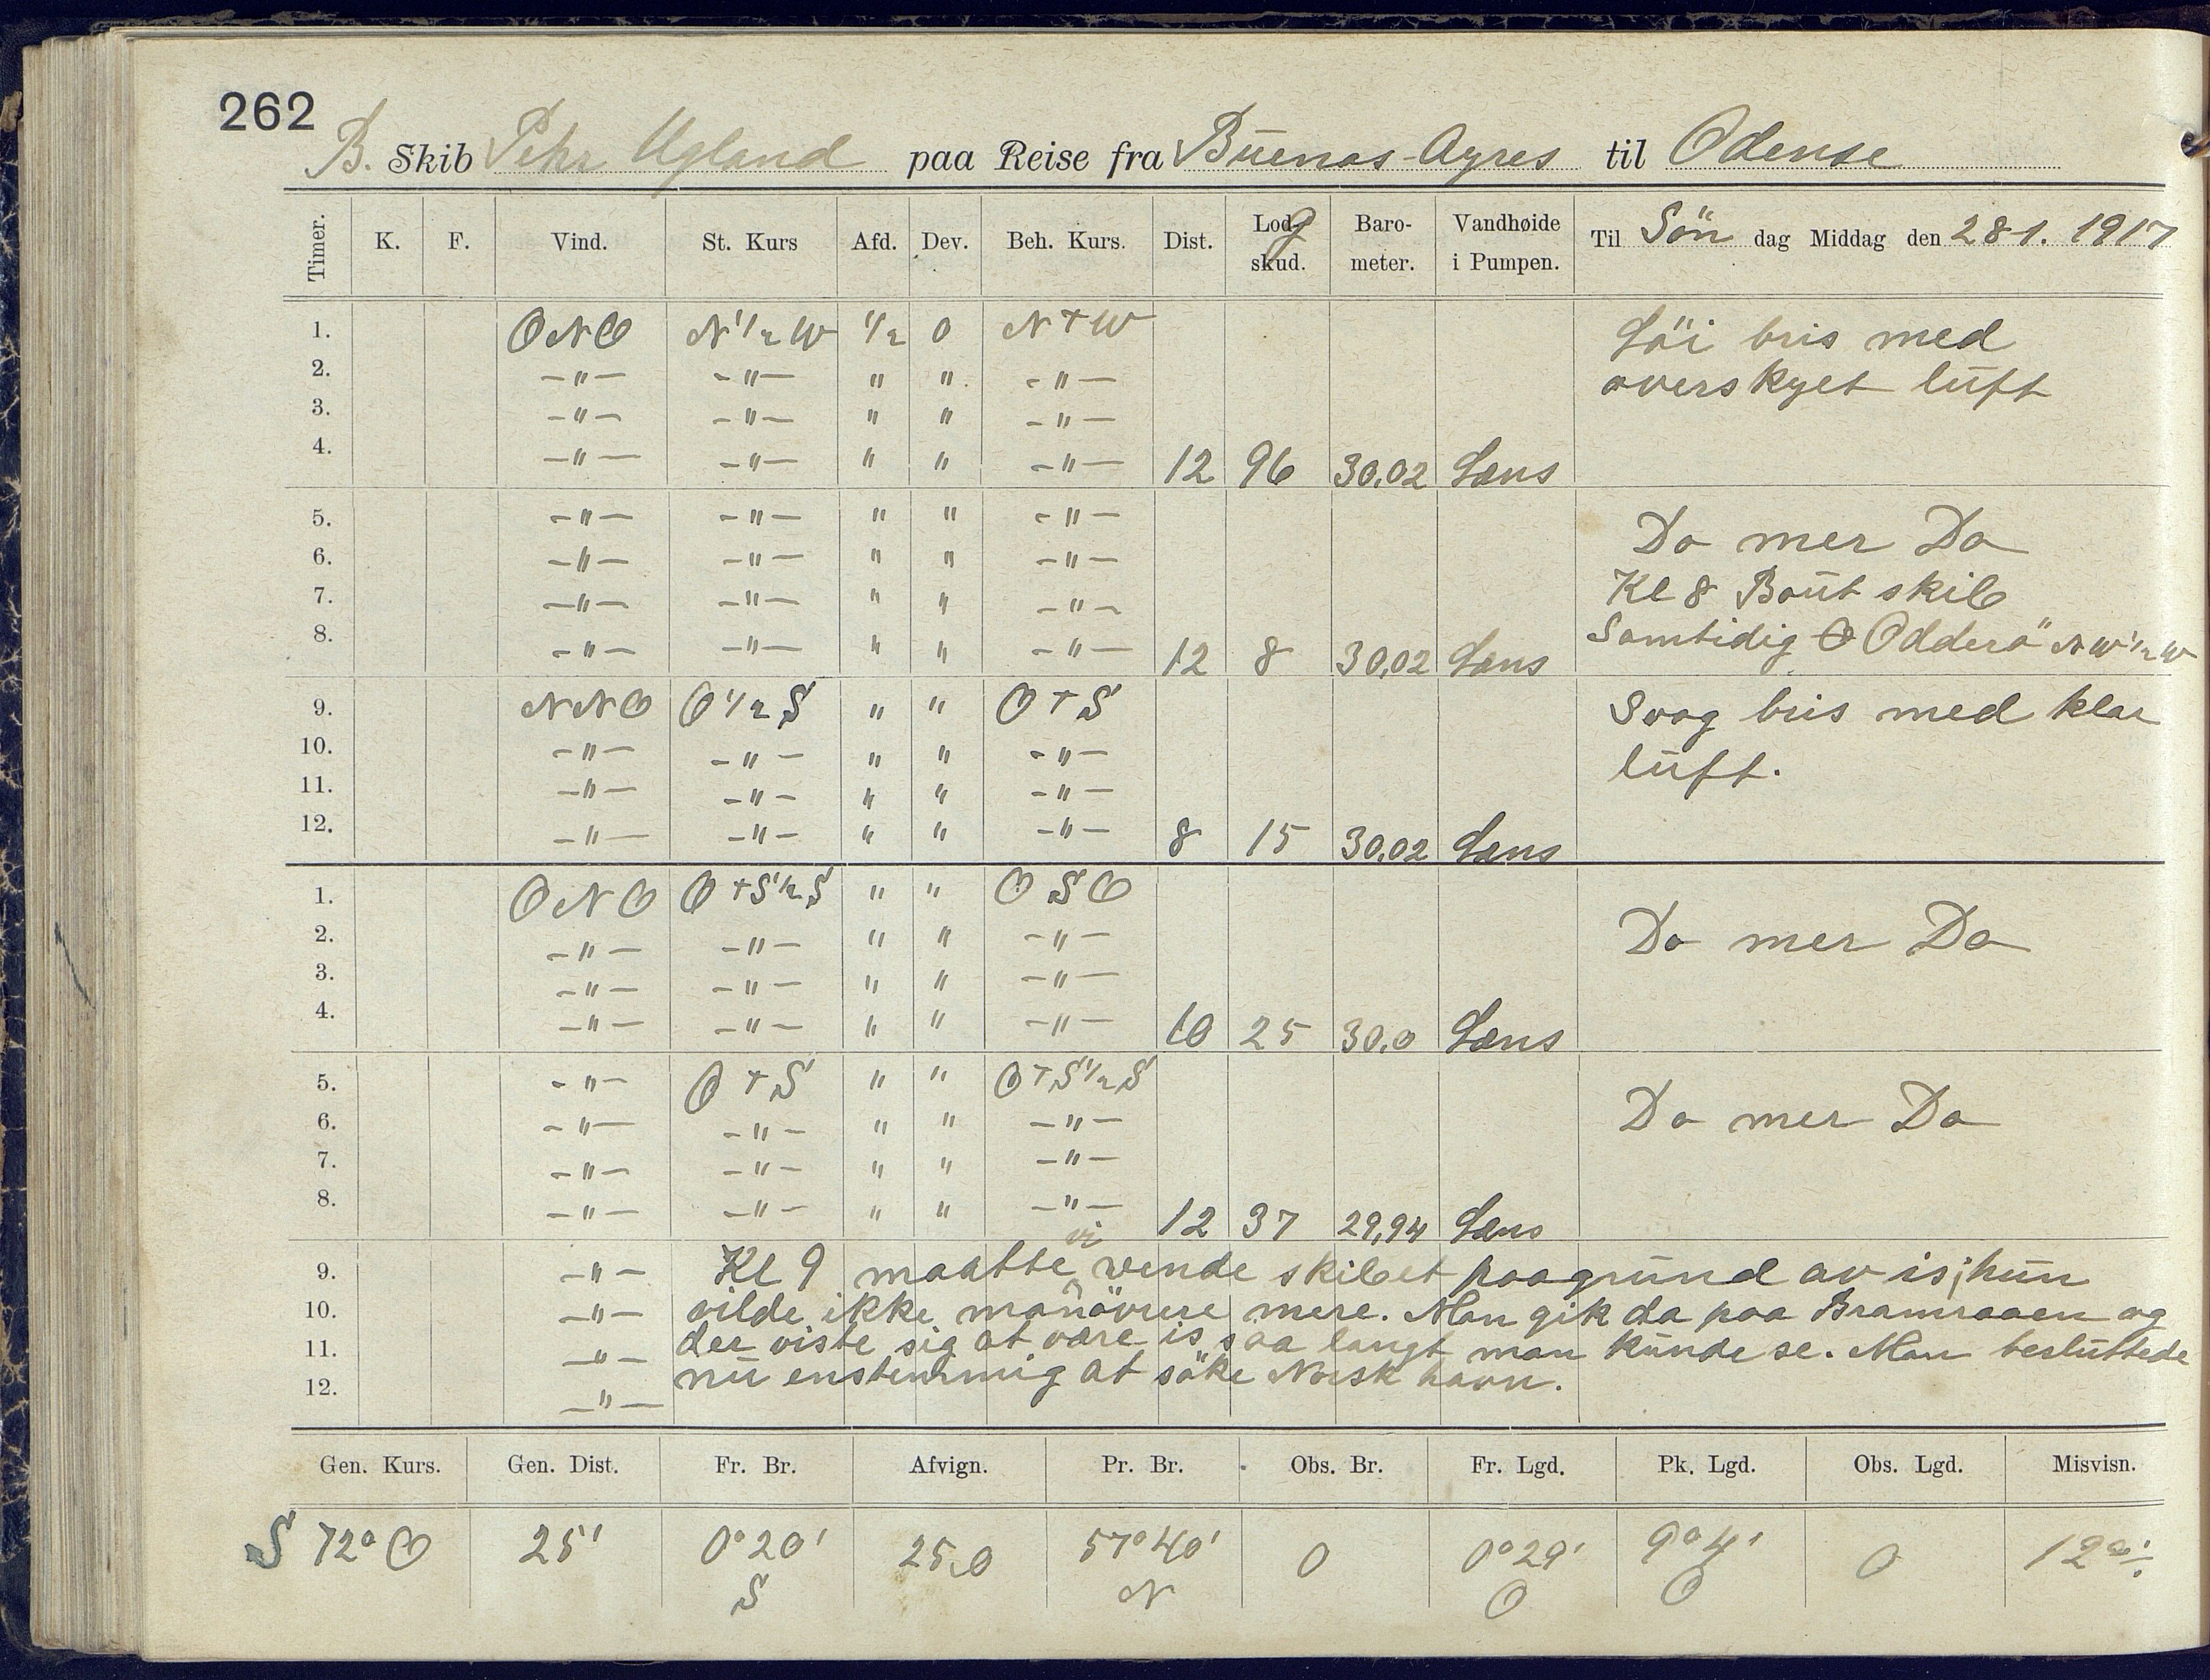 262
B. Skib Pehr Ugland paa Reise fra Buenos-Ayres til Odense
Timer. K. F. Vind. St. Kurs Afd. Dev. Beh. Kurs. Dist. Lodg skud. Baro-meter. Vandhøide i Pumpen. Til Sön dag Middag den 28-1. 1917
1. ONO N 1/2 W 1/2 0 N + W Löi bris med
2. -"- -"- " " -"- overskyet luft
3. -"- -"- " " -"-
4. -"- -"- " " -"- 12 96 30.02 Læns
5. -"- -"- " " -"- Do mer Do
6. -"- -"- " " -"-
7. -"- -"- " " -"- Kl 8 Bout skib
8. -"- -"- " " -"- 12 8 30,02 Læns Samtidig Odderö" NW 1/2 W
9. NNO O 1/2 S " " O + S Svag bris med klar
10. -"- -"- " " -"- luft.
11. -"- -"- " " -"-
12. -"- -"- " " -"- 8 15 30.02 Læns
1. ONO O + S 1/2 S " " OSO
2. -"- -"- " " -"- Do mer Do
3. -"- -"- " " -"-
4. -"- -"- " " -"- 10 25 30.0 Læns
5. -"- O + S " " O + S 1/2 S
6. -"- -"- " " -"- Do mer Do
7. -"- -"- " " -"-
8. -"- -"- " " -"- 12 37 29,94 Læns
9. -"- Kl 9 maatte vi vende skibet paagrund av is; hun
10. -"- vilde ikke manövrere mere. Man gik da paa Bramraaen og
11. -"- der viste sig at være is saa langt man kunde se. Man besluttede
12. -"- nu enstemmig at söke Norsk havn.
Gen. Kurs. Gen. Dist. Fr. Br. Afvign. Pr. Br. Obs. Br. Fr. Lgd. Pk. Lgd. Obs. Lgd. Misvisn.
S 72° O 25' 0°20' S 25,0 57°40' N 0 0°29' O 9°4' O 0 12°